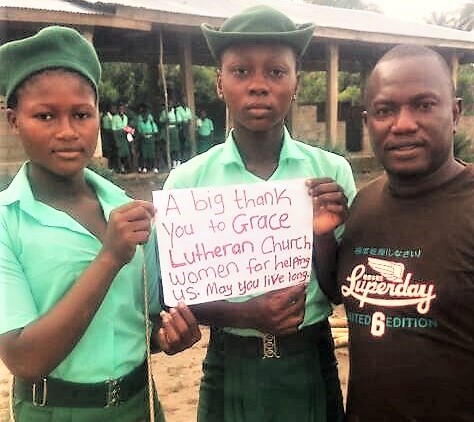 A big thank
you to Grace
Lutheran Church
women for helping
us. May you live long.
Superdry
6 EDITION